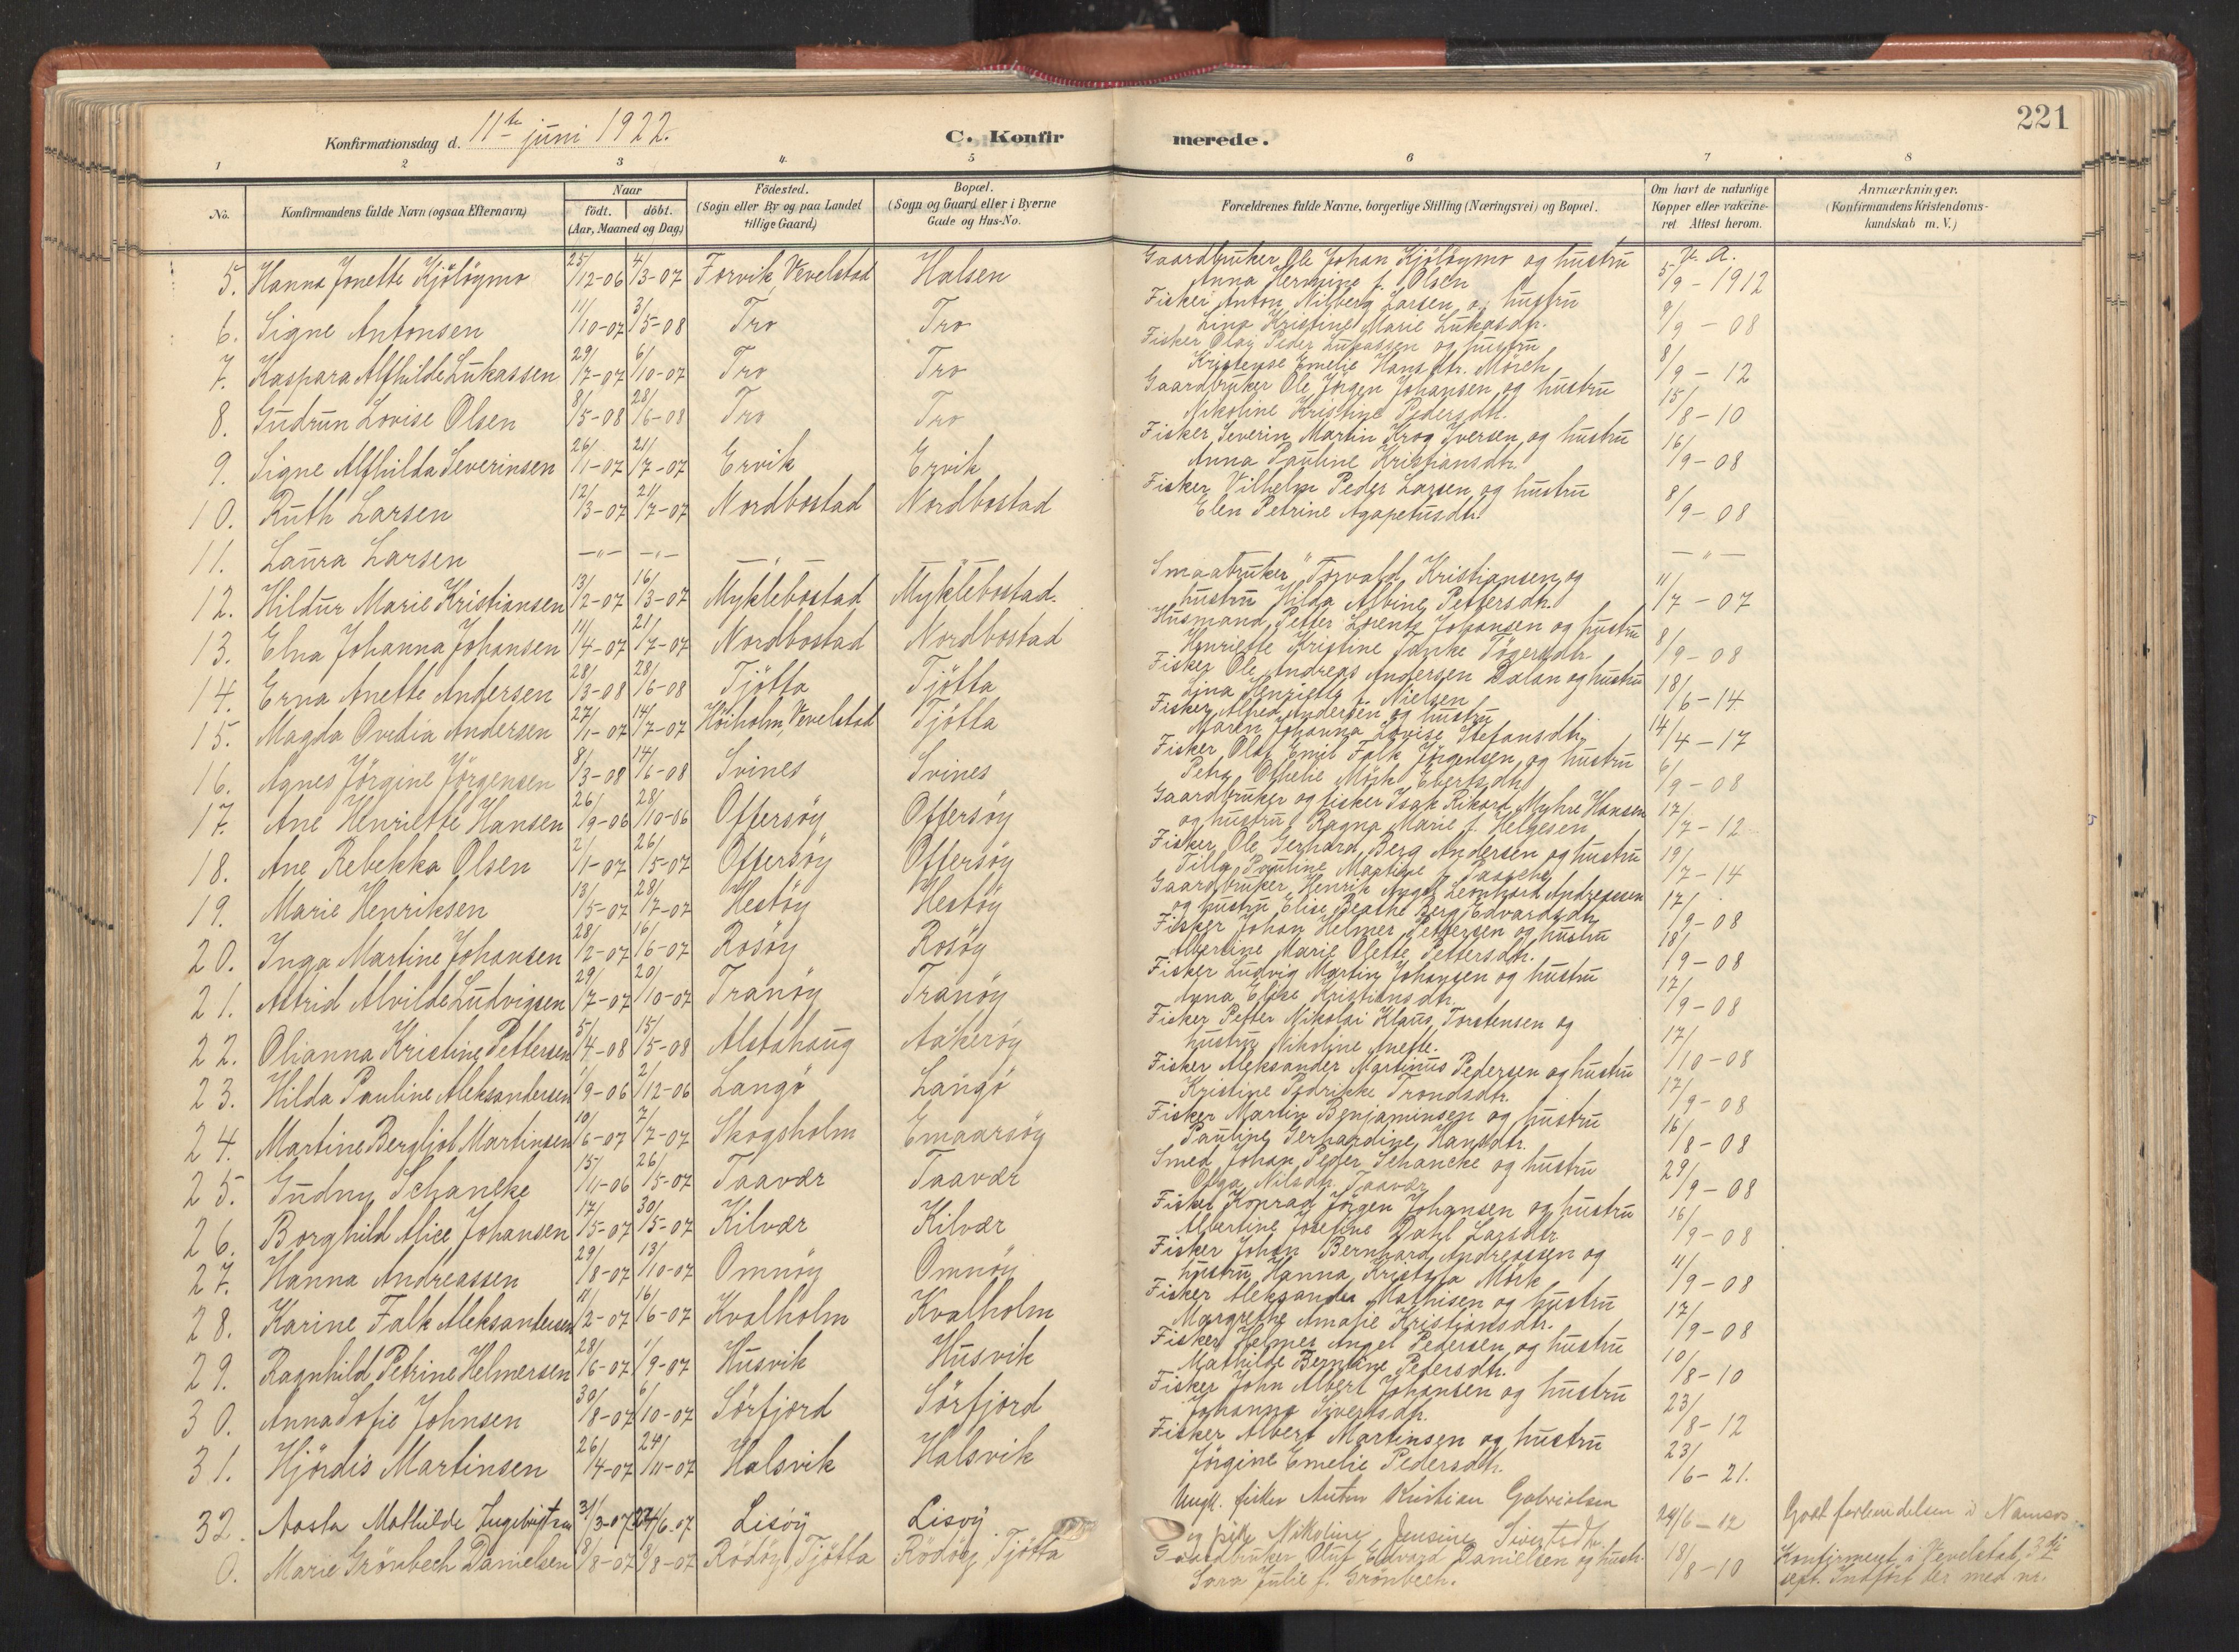 221
Konfirmationsdag d. 11te juni 1922.
C. Konfir
merede.
1 2 3 4 5 6 7 8
No.
Konfirmandens fulde Navn (ogsaa Efternavn)
Naar
födt. döbt.
(Aar, Maaned og Dag)
Födested.
(Sogn eller By og paa Landet
tillige Gaard)
Bopæl.
(Sogn og Gaard eller i Byerne
Gade og Hus-No.
Forældrenes fulde Navne, borgerlige Stilling (Næringsvei) og Bopæl.
Om havt de naturlige
Kopper eller vakcine-
ret. Attest herom.
Anmærkninger.
(Konfirmandens Kristendoms-
kundskab m. V.)
5. Hanna Jonette Kjölöymo 25/12-06 4/3-07 Forvik, Vevelstad Halsen Gaardbruker Ole Johan Kjölöymo og hustru v. a.
Anna Hermine f. Olsen 5/9-1912
6. Signe Antonsen 11/10-07 3/5-08 Tro Tro Fisker Anton Nilberg Larsen og hustru
Lina Kristine Marie Lukasdtr. 9/9-08
7. Kaspara Alfhilde Lukassen 29/7-07 6/10-07 Tro Tro Fisker Olaf Peder Lukassen og hustru
Kristense Emelie Hansdtr. Mörch 8/9-12
8. Gudrun Lovise Olsen 8/5-08 28/6-08 Tro Tro Gaardbruker Ole Jörgen Johansen og hustru
Nikoline Kristine Pedersdtr. 15/8-10
9. Signe Alfhilda Severinsen 26/1-07 21/7-07 Ervik Ervik Fisker Severin Martin Krog Iversen og hustru
Anna Pauline Kristiansdtr. 16/9-08
10. Ruth Larsen 12/3-07 21/7-07 Nordbostad Nordbostad Fisker Vilhelm Peder Larsen og hustru
Elen Petrine Agapetusdtr. 8/9-08
11. Laura Larsen —"— —"— — — " —"—
12. Hildur Marie Kristiansen 13/2-07 16/3-07 Myklebostad Myklebostad. Smaabruker Torvald Kristiansen og
hustru Hilda Albine Pettersdtr. 11/7-07
13. Elna Johanna Johansen 11/4-07 21/7-07 Nordbostad Nordbostad Husmand Petter Lorents Johansen og hustru
Henriette Kristine Tanke Tögersdtr 8/9-08
14. Erna Anette Andersen 28/3-08 28/6-08 Tjötta Tjötta Fisker Ole Andreas Andersen Dalan og hustru
Lina Henriette f. Nielsen 18/6-14
15. Magda Ovedia Andersen 27/1-07 14/7-07 Höiholm, Vevelstad Tjötta Fisker Alfred Andersen og hustru
Maren Johanna Lovise Stefansdtr. 14/4-17
16. Agnes Jörgine Jörgensen 8/3-08 14/6-08 Svines Svines Fisker Olaf Emil Falk Jörgensen og hustru
Petra Othelie Mörk Evertsdtr. 6/9-08
17. Ane Henriette Hansen 26/9-06 28/10-06 Offersöy Offersöy Gaardbruker og fisker Isak Rikard Myhre Hansen
og hustru Ragna Marie f. Helgesen 17/7-12
18. Ane Rebekka Olsen 2/1-07 26/5-07 Offersöy Offersöy Fisker Ole Gerhard Berg Andersen og hustru
Tilla Pauline Martine f. 19/7-14
19. Marie Henriksen 13/5-07 28/7-07 Hestöy Hestöy Gaardbruker Henrik Angel Leonhard Andreassen
og hustru Elise Beathe Berg Edvardsdtr 17/9-08
20. Inga Martine Johansen 28/2-07 16/6-07 Rosöy Rosöy Fisker Johan Helmer Pettersen og hustru
Albertine Marie Olette Pettersdtr. 18/9-08
21. Astrid Alvilde Ludvigsen 29/7-07 20/10-07 Tranöy Tranöy Fisker Ludvig Martin Johansen og hustru
Anna Elise Kristiansdtr. 17/9-08
22. Olianna Kristine Pettersen 5/4-08 15/5-08 Alstahaug Aakeröy Fisker Petter Nikolai Klaus Torstensen og
hustru Nikoline Anette. 17/10-08
23. Hilda Pauline Aleksandersen 1/9-06 2/12-06 Langö Langö Fisker Aleksander Martinus Pedersen og hustru
Kristine Pedrikke Trondsdtr. 17/9-08
24. Martine Bergljot Martinsen 10/6-07 7/7-07 Skogsholm Emaarsöy Fisker Martin Benjaminsen og hustru
Pauline Gerhardine Hansdtr. 16/8-08
25. Gudny Schancke 15/11-06 26/5-07 Taavær Taavær Smed Johan Peder Schancke og hustru
Olga Nilsdtr. Taavær 29/9-08
26. Borghild Alice Johansen 17/5-07 30/5-07 Kilvær Kilvær Fisker Konrad Jörgen Johansen og hustru
Albertine Josefine Dahl Larsdtr 16/9-08
27. Hanna Andreassen 29/8-07 13/10-07 Omnöy Omnöy Fisker Johan Bernhard Andreassen og
hustru Hanna Kristofa Mörk 11/9-08
28. Karine Falk Aleksandersen 11/2-07 16/6-07 Kvalholm Kvalholm Fisker Aleksander Mathisen og hustru
Margrethe Amalie Kristiansdtr. 17/9-08
29. Ragnhild Petrine Helmersen 28/6-07 1/9-07 Husvik Husvik Fisker Helmer Angel Pedersen og hustru
Mathilde Berntine Petersdtr. 10/8-10
30. Anna Sofie Johnsen 30/8-07 6/10-07 Sörfjord Sörfjord Fisker John Albert Johansen og hustru
Johanna Sivertsdtr. 23/8-12
31. Hjördis Martinsen 26/4-07 24/11-07 Halsvik Halsvik Fisker Albert Martinsen og hustru
Jörgine Emelie Pedersdtr. 23/6-21.
32. Aasta Mathilde Ingebrigtsen 31/3-07 24/6-07 Lisöy Lisöy Ungk. fisker Anton Kristian Gabrielsen
og pike Nikoline Jensine Sivertsdtr. 24/6-12 Godt forbundet i Namsos
0. Marie Grönbech Danielsen 18/8-07 8/8-07 Rödöy, Tjötta Rödöy, Tjötta Gaardbruker Oluf Edvard Danielsen og hustr.
Sara Julie f. Grönbech. 18/8-10 Konfirmert i Vevelstad 3die
sept. Indfört der med nr.